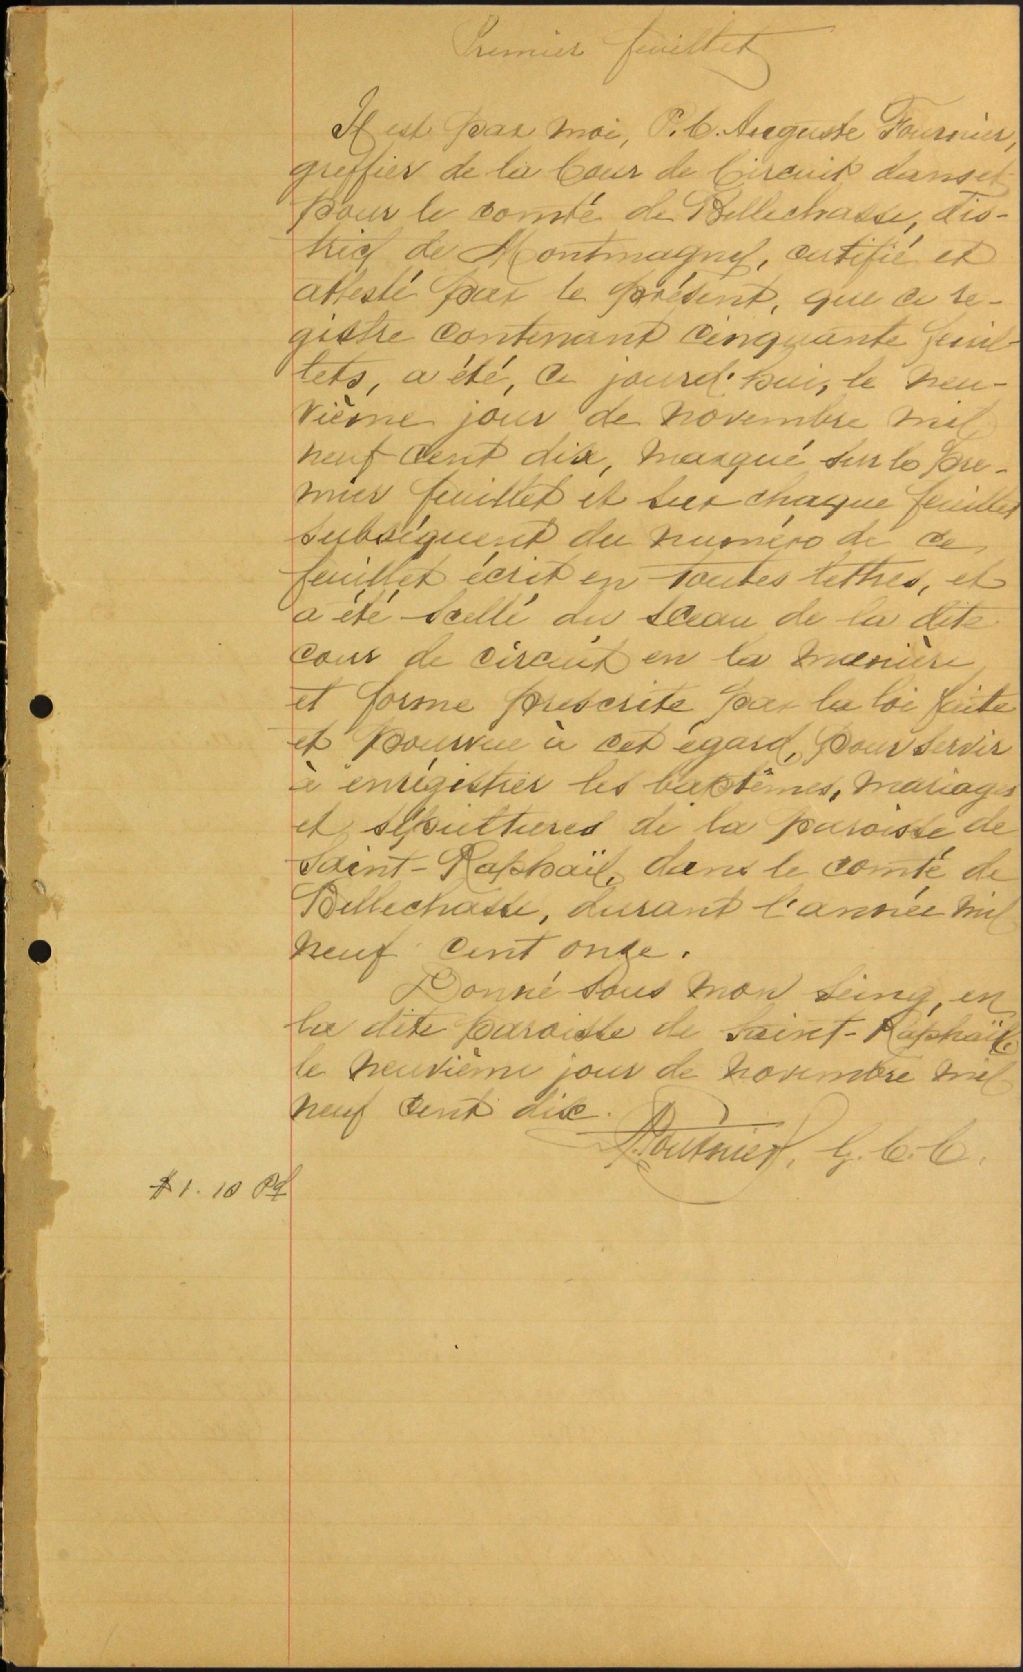 Premier feuillet
Il est par moi, P. C. Auguste Fournier,
greffier de la Cour de Circuit dans et
pour le comté de Bellechasse, dis-
trict de Montmagny, certifié et
attesté par le présent, que ce re-
gistre contenant cinquante feuil-
lets, a été, ce jourd'hui, le neu-
vième jour de novembre mil
neuf cent dix, marqué sur le pre-
mier feuillet et sur chaque feuillet
subséquent du numéro de ce
feuillet écrit en toutes lettres, et
a été scellé du sceau de la dite
cour de circuit en la manière
et forme prescrite par la loi faite
et pourvue à cet égard, pour servir
à enrégistrer les baptêmes, mariages
et sépultures de la paroisse de
Saint-Raphaël, dans le comté de
Bellechasse, durant l'année mil
neuf cent onze.
Donné sous mon seing, en
la dite paroisse de Saint-Raphaël,
le neuvième jour de novembre mil
neuf cent dix.
A. Fournier, G. C. C.
$1.10 Pd